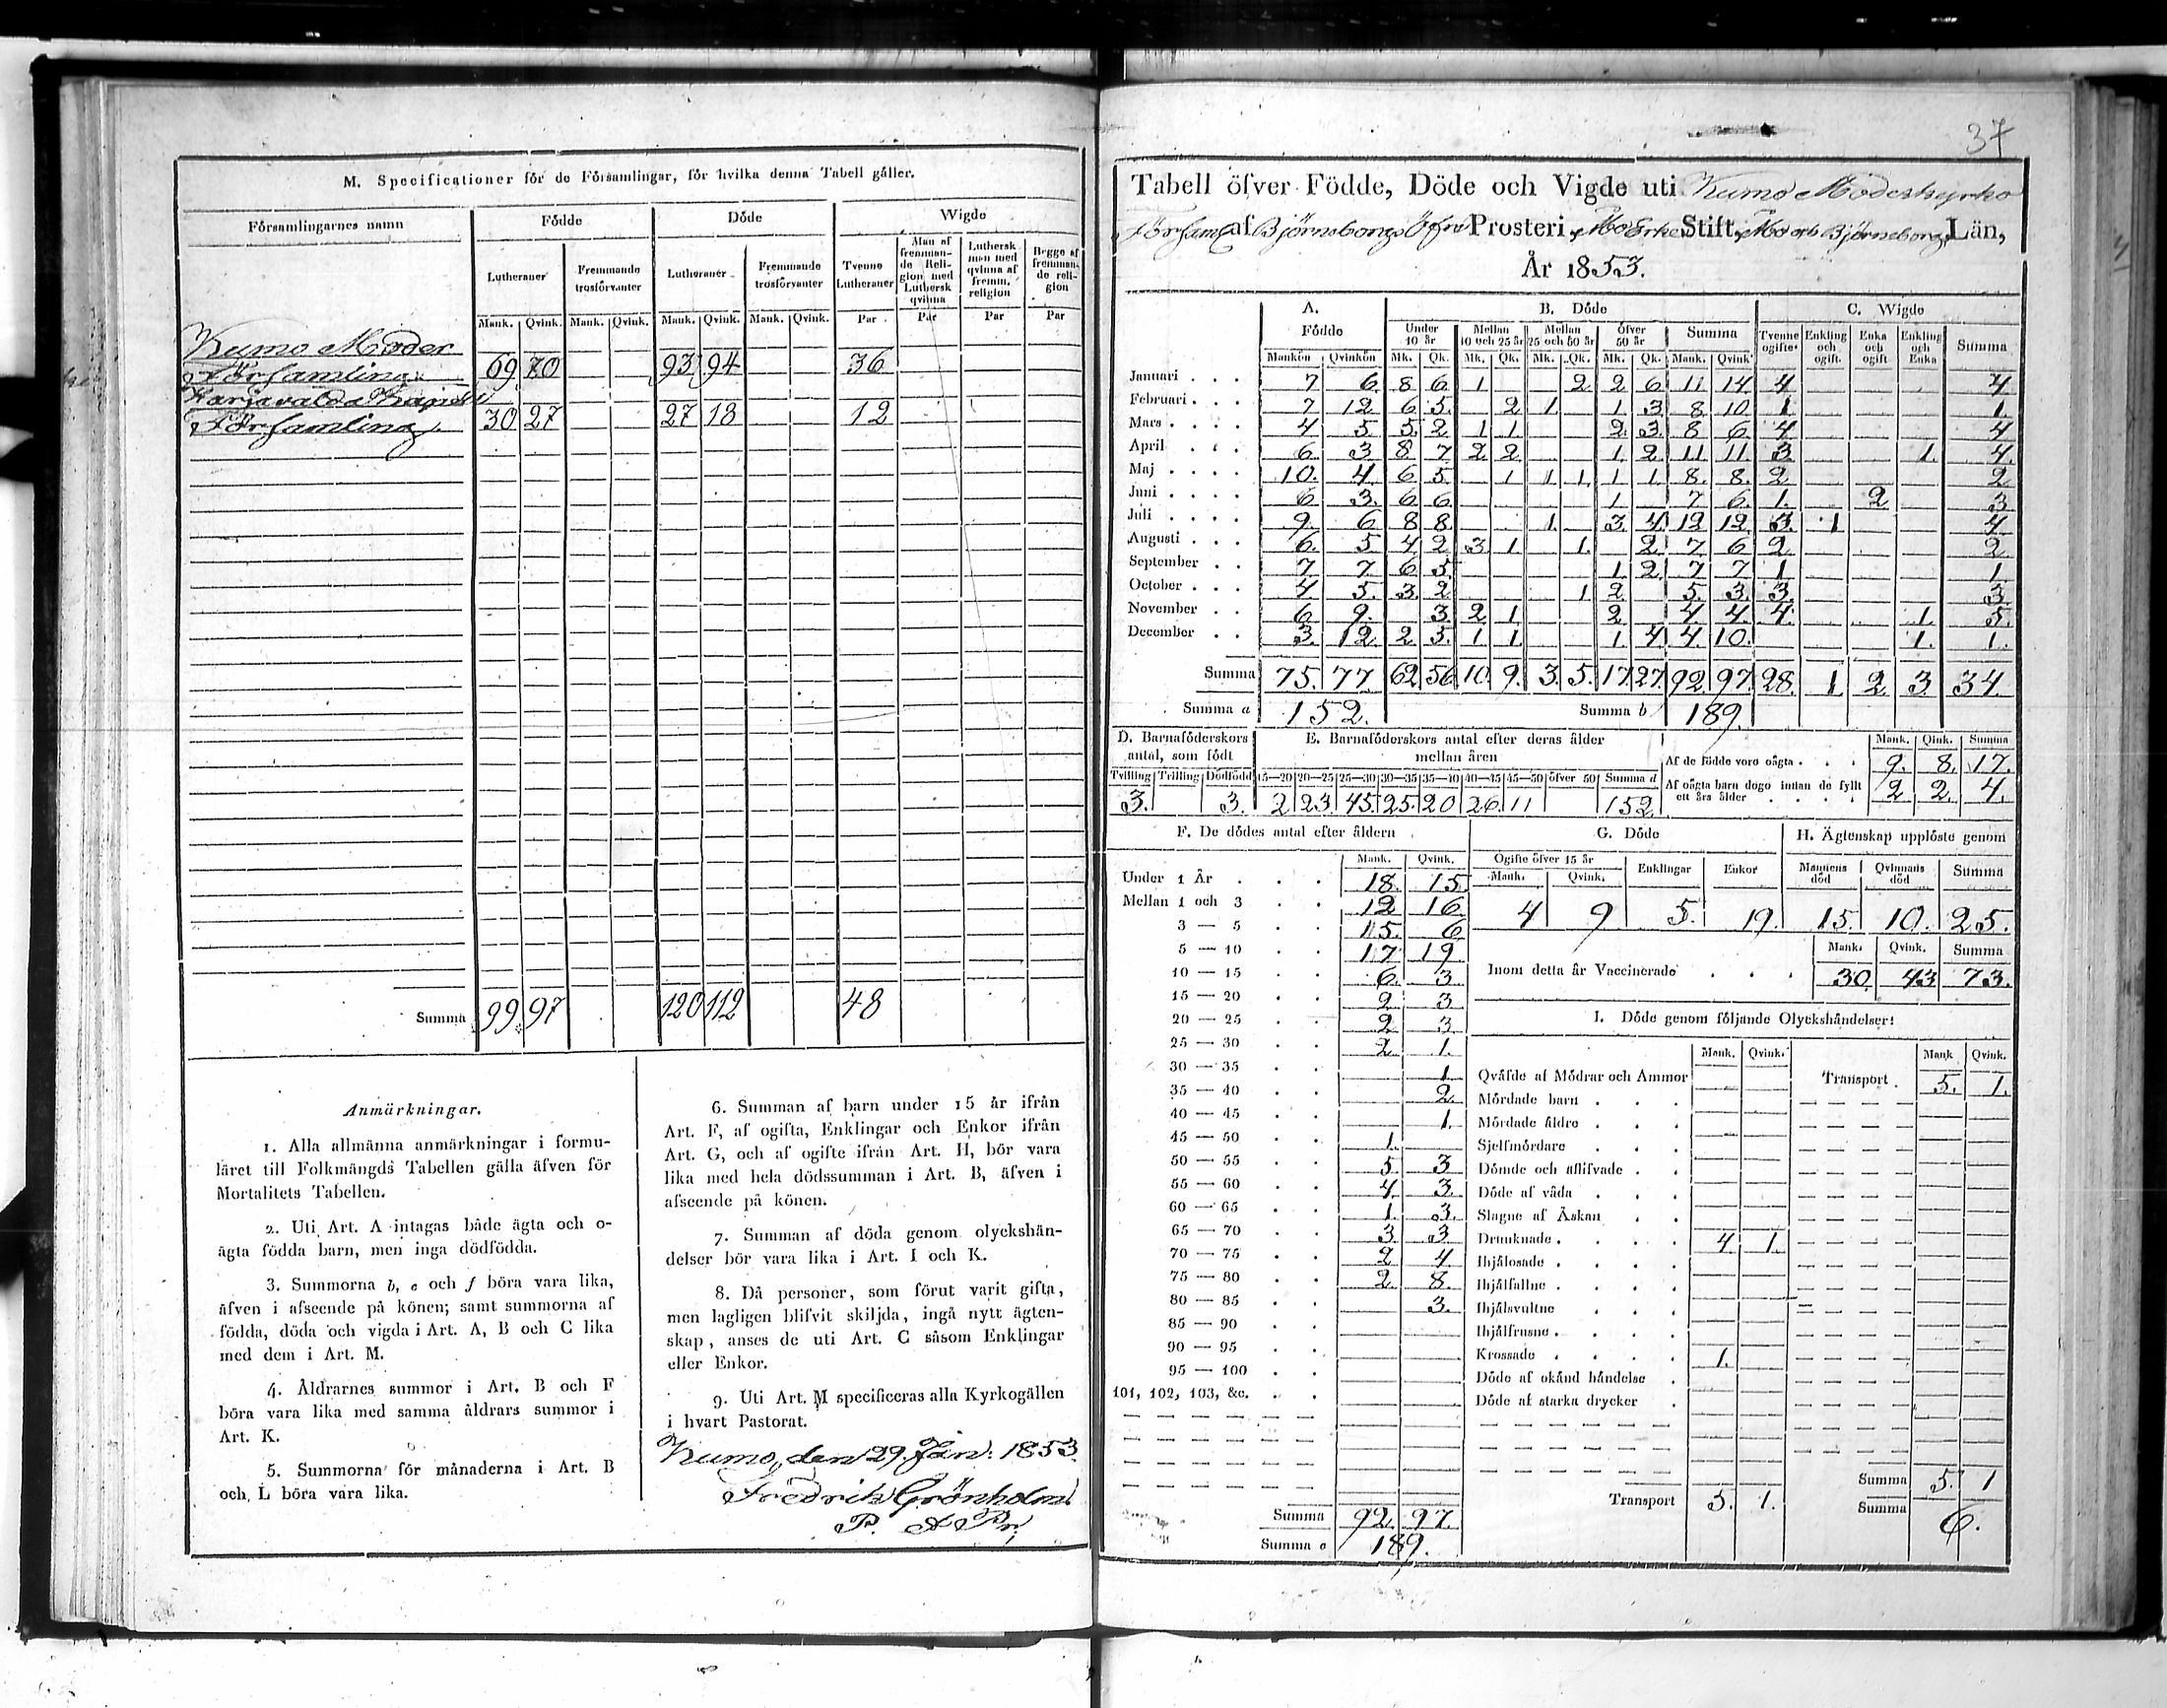 M. Specificationer för de Församlingar, för hvilka denna Tabell gäller.
Församlingarnes namn Födde Döde Wigde
Lutheraner Fremmande trosförvanter Lutheraner Fremmande trosförvanter Tvenne Lutheraner Man af fremmande Religion med Luthersk qvinna Luthersk man med qvinna af fremm. religion Begge af fremmande religion
Mank. Qvink. Mank. Qvink. Mank. Qvink. Mank. Qvink. Par Par Par Par
Kumo Moder
Församling 69 70 93 94 36
Harjavalda Kapell
Församling 30 27 27 18 12
Summa 99 97 120 112 48
Anmärkningar.
1. Alla allmänna anmärkningar i formu-
läret till Folkmängds Tabellen gälla äfven för
Mortalitets Tabellen.
2. Uti Art. A intagas både ägta och o-
ägta födda barn, men inga dödfödda.
3. Summorna b, e och f böra vara lika,
äfven i afseende på könen; samt summorna af
födda, döda och vigda i Art. A, B och C lika
med dem i Art. M.
4. Åldrarnes summor i Art. B och F
böra vara lika med samma åldrars summor i
Art. K.
5. Summorna för månaderna i Art. B
och L böra vara lika.
6. Summan af barn under 15 år ifrån
Art. F, af ogifta, Enklingar och Enkor ifrån
Art. G, och af ogifte ifrån Art. H, bör vara
lika med hela dödssumman i Art. B, äfven i
afseende på könen.
7. Summan af döda genom olyckshän-
delser bör vara lika i Art. I och K.
8. Då personer, som förut varit gifta,
men lagligen blifvit skiljda, ingå nytt ägten-
skap, anses de uti Art. C såsom Enklingar
eller Enkor.
9. Uti Art. M specificeras alla Kyrkogällen
i hvart Pastorat.
Kumo, den 29. Jan. 1853.
Fredrik Grönholm
P.
37
Tabell öfver Födde, Döde och Vigde uti Kumo Moderkyrko
Församl af Björneborgs Öfre Prosteri, Åbo Erke Stift, Åbo och Björneborgs Län,
År 1853.
A. B. Döde C. Wigde
Födde Under 10 år Mellan 10 och 25 år Mellan 25 och 50 år Öfver 50 år Summa Tvenne ogifte Enkling och ogift. Enka och ogift Enkling och Enka Summa
Mankön Qvinkön Mk. Qk. Mk. Qk. Mk. Qk. Mk. Qk. Mank. Qvink
Januari 7 6 8 6 1 2 2 6 11 14 4 4
Februari 7 12 6 5 2 1 1 3 8 10 1 1
Mars 4 5 5 2 1 1 2 3 8 6 4 4
April 6 3 8 7 2 2 1 2 11 11 3 1 4
Maj 10 4 6 5 1 1 1 1 1 8 8 2 2
Juni 6 3 6 6 1 7 6 1 2 3
Juli 9 6 8 8 1 3 4 12 12 3 1 4
Augusti 6 5 4 2 3 1 1 2 7 6 2 2
September 7 7 6 5 1 2 7 7 1 1
October 4 5 3 2 1 2 5 3 3 3
November 6 9 3 2 1 2 4 4 4 1 5
December 3 12 2 5 1 1 1 4 4 10 1 1
Summa 75 77 62 56 10 9 3 5 17 27 92 97 28 1 2 3 34
Summa a 152. Summa b 189.
D. Barnaföderskors antal, som födt E. Barnaföderskors antal efter deras ålder mellan åren Mank. Qink. Summa
Tvilling Trilling Dödfödd 15—20 20—25 25—30 30—35 35—40 40—45 45—50 öfver 50 Summa d Af de födde voro oägta 9 8 17
3 3 2 23 45 25 20 26 11 152 Af oägta barn dogo innan de fyllt ett års ålder 2 2 4
F. De dödes antal efter åldern
Mank. Qvink.
Under 1 År 18 15
Mellan 1 och 3 12 16
3 — 5 15 6
5 — 10 17 19
10 — 15 6 3
15 — 20 2 3
20 — 25 2 3
25 — 30 2 1
30 — 35 1
35 — 40 2
40 — 45 1
45 — 50 1
50 — 55 5 3
55 — 60 4 3
60 — 65 1 3
65 — 70 3 3
70 — 75 2 4
75 — 80 2 8
80 — 85 3
85 — 90
90 — 95
95 — 100
101, 102, 103, &c.
Summa 92 97
Summa e 189.
G. Döde H. Ägtenskap upplöste genom
Ogifte öfver 15 år Enklingar Enkor Mannens död Qvinnans död Summa
Mank. Qvink.
4 9 5 19 15 10 25
Mank. Qvink. Summa
Inom detta år Vaccinerade 30 43 73
I. Döde genom följande Olyckshändelser:
Mank. Qvink. Mank Qvink.
Qväfde af Mödrar och Ammor Transport 5 1
Mördade barn
Mördade äldre
Sjelfmördare
Dömde och aflifvade
Döde af våda
Slagne af Åskan
Drunknade 4 1
Ihjälosade
Ihjälfallne
Ihjälsvultne
Ihjälfrusne
Krossade 1
Döde af okänd händelse
Döde af starka drycker
Summa 5 1
Transport 5 1
Summa 6.